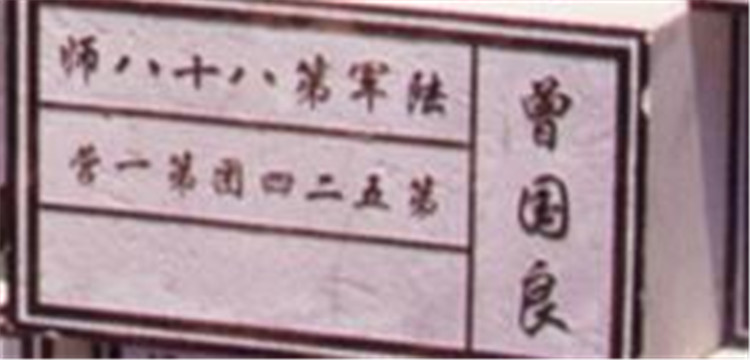 曾国良
陆军第八十八师
第五二四团第一营